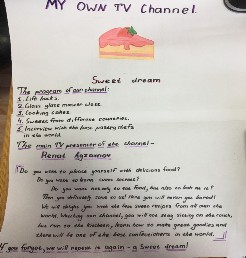 MY OWN TV Channel.
Sweet dream
The program of our channel:
1. Life hacks.
2. Glass glaze master class.
3. Cooking cakes.
4. Sweets from different countries.
5. Interview with the best pastry chefs
in the world.
The main TV presenter of the channel -
Do you want to please yourself with delicious food?
Do you want to learn sweet secrets?
Do you want not only to eat food, but also to look at it?
Then you definitely come to us! Here you will never get bored!
We will show you the best sweet recipes from all over the
world. Watching our channel, you will see easy sitting on the couch,
but run to the kitchen, learn how to make great goodies and
will be one of the best confectioners in the world.
If you forgot, we will repeat it again - a Sweet dream!